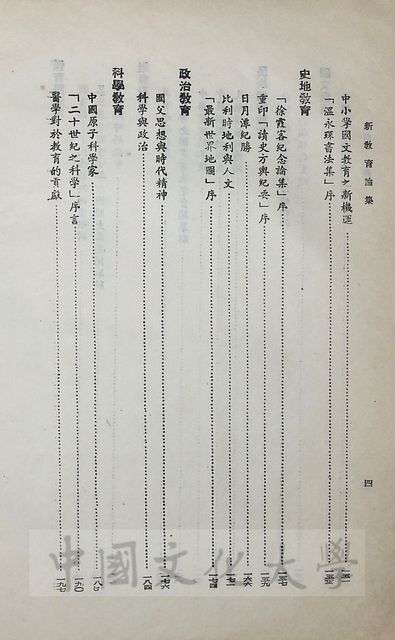 新教育論集
四
中小學國文教育之新機運……一五一
「溫永琛書法集」序……一五五
史地教育
「徐霞客紀念論集」序……一五七
重印「讀史方輿紀要」序……一五九
日月潭紀勝……一六六
比利時地利與人文……一七二
「最新世界地圖」序……一七四
政治教育
國父思想與時代精神……一七六
科學與政治……一八四
科學教育
中國原子科學家……一八七
「二十世紀之科學」序言……一九〇
醫學對於教育的貢獻……一九七
中國文化大學